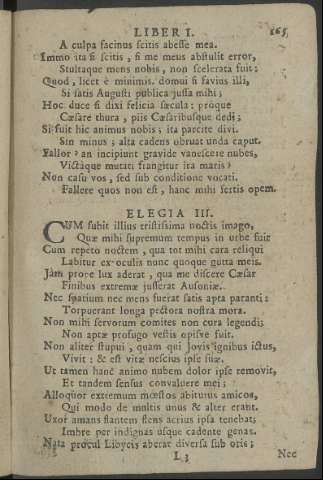 LIBER I. 165
A culpa facinus scitis abesse mea.
Immo ita si scitis, si me meus abstulit error,
Stultaque mens nobis, non scelerata fuit;
Quod, licet è minimis, domui si favius illi,
Si satis Augusti publica jussa mihi;
Hoc duce si dixi felicia sæcula: proque
Cæsare thura, piis Cæsaribusque dedi;
Si fuit hic animus nobis; ita parcite divi.
Sin minus; alta cadens obruat unda caput.
Fallor? an incipiunt gravidæ vanescere nubes,
Victàque mutati frangitur ira maris?
Non casu vos, sed sub conditione vocati.
Fallere quos non est, hanc mihi fertis opem.
ELEGIA III.
CUM subit illius tristissima noctis imago,
Quæ mihi supremum tempus in orbe fuit
Cum repeto noctem, qua tot mihi cara reliqui
Labitur ex oculis nunc quoque gutta meis.
Jàm prope lux aderat, qua me discere Cæsar
Finibus extremæ jusserat Ausoniæ.
Nec spatium nec mens fuerat satis apta paranti:
Torpuerant longa pectora nostra mora.
Non mihi servorum comites non cura legendi;
Non aptæ profugo vestis opisve fuit.
Non aliter stupui, quam qui Jovis ignibus ictus,
Vivit: & est vitæ nescius ipse suæ.
Ut tamen hanc animo nubem dolor ipse removit,
Et tandem sensus convaluere mei;
Alloquor extremum mœstos abiturus amicos,
Qui modo de multis unus & alter erant.
Uxor amans flentem flens acrius ipsa tenebat;
Imbre per indignas usque cadente genas.
Nata procul Libycis aberat diversa sub oris;
L 3 Nec